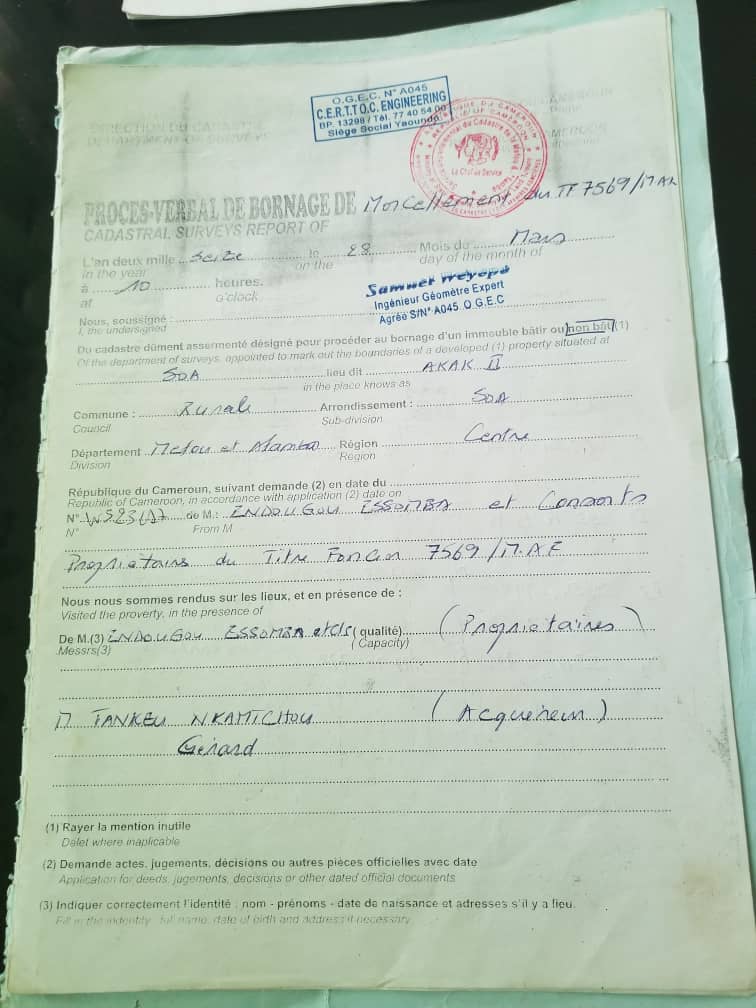 O.G.E.C. N° A045
C.E.R.T.T.O.C. ENGINEERING
BP. 13298 / Tél. 77 40 54 00
Siège Social Yaoundé
Le Chef de Service
DIRECTION DU
DEPARTMENT OF SURVEYS
PROCES-VERBAL DE BORNAGE DE Morcellement du TF 7569/M.AE
CADASTRAL SURVEYS REPORT OF
L'an deux mille seize le 28 Mois du Mars
in the year on the day of the month of
à 10 heures.
at o'clock
Samuel Weyepe
Ingénieur Géomètre Expert
Agréé S/N° A045 O.G.E.C
Nous, soussigné :
I, the undersigned
Du cadastre dûment assermenté désigné pour procéder au bornage d'un immeuble bâtir ou non bâti (1)
Of the department of surveys, appointed to mark out the boundaries of a developed (1) property situated at
SOA lieu dit AKAK II
in the place knows as
Commune : Rurale Arrondissement : SOA
Council Sub-division
Département Mefou et Afamba Région Centre
Division Région
République du Cameroun, suivant demande (2) en date du
Republic of Cameroon, in accordance with application (2) date on
N° de M.: ENDOUGOU ESSOMBA et Consorts
N° From M
Propriétaires du Titre Foncier 7569/M.AE
Nous nous sommes rendus sur les lieux, et en présence de :
Visited the proverty, in the presence of
De M.(3) ENDOUGOU ESSOMBA et cts (qualité) (Propriétaires)
Messrs(3) (Capacity)
M TANKEU NKAMTCHOU (Acquéreur)
Gérard
(1) Rayer la mention inutile
Delet where inaplicable
(2) Demande actes, jugements, décisions ou autres pièces officielles avec date
Application for deeds, jugements, decisions or other dated official documents
(3) Indiquer correctement l'identité : nom - prénoms - date de naissance et adresses s'il y a lieu.
Fill in the indentity : full name, date of birth and address it necessary